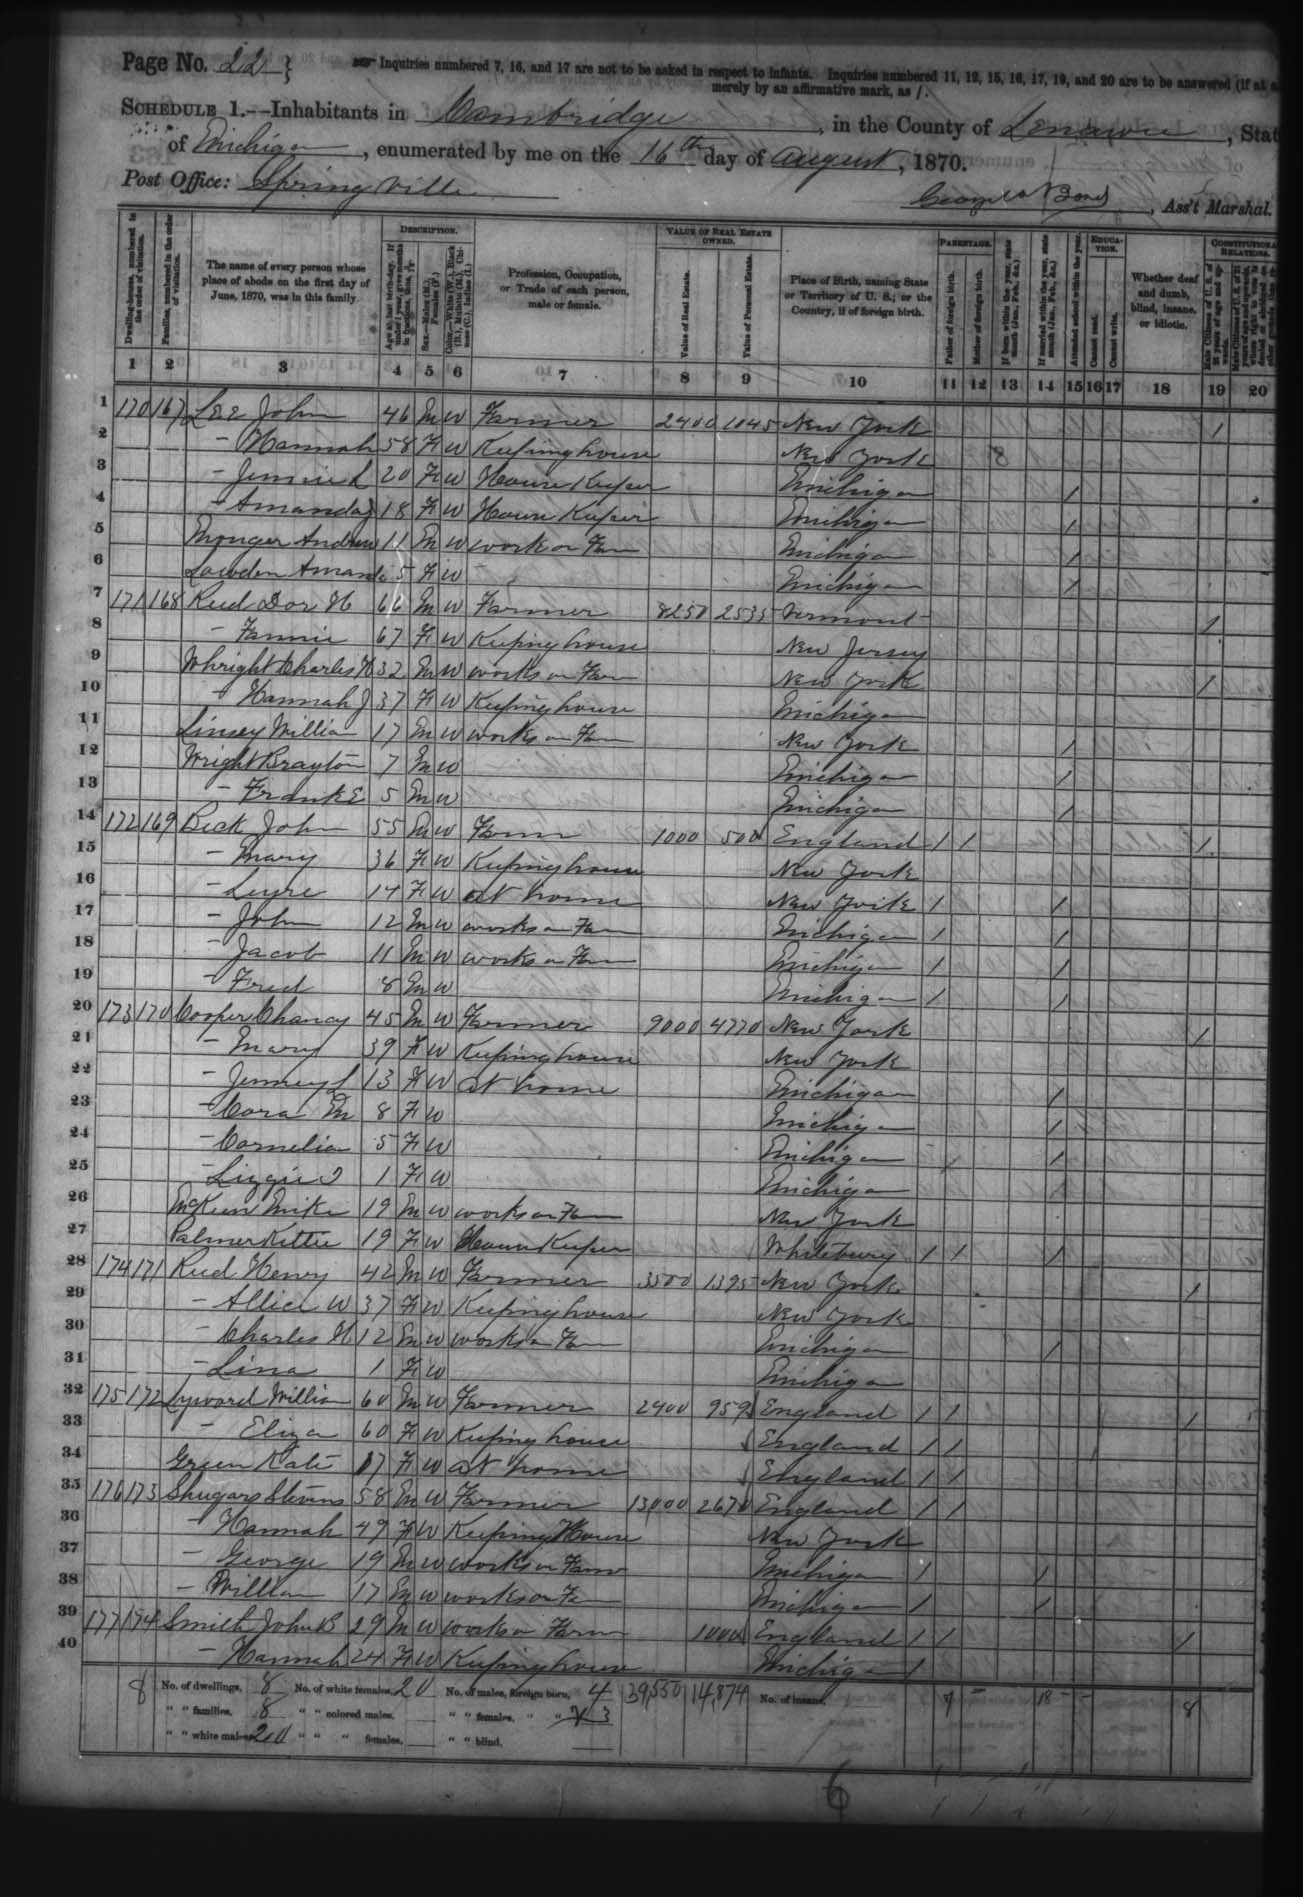 Page No. 22
Inquiries numbered 7, 16, and 17 are not to be asked in respect to infants. Inquiries numbered 11, 12, 15, 16, 17, 19, and 20 are to be answered (if at a
merely by an affirmative mark, as /.
SCHEDULE 1.—Inhabitants in Cambridge, in the County of Lenawee, Stat
of Michigan, enumerated by me on the 16th day of August, 1870.
Post Office: Springville
Ass't Marshal.
DESCRIPTION.
VALUE OF REAL ESTATE OWNED.
PARENTAGE.
EDUCATION.
CONSTITUTIONA RELATIONS.
Dwelling-houses, numbered in the order of visitation.
Families, numbered in the order of visitation.
The name of every person whose place of abode on the first day of June, 1870, was in this family.
Age at last birth-day. If under 1 year, give months in fractions, thus, 3/12
Sex.—Males (M.), Females (F.)
Color.—White (W.), Black (B.), Mulatto (M.), Chinese (C.), Indian (I.)
Profession, Occupation, or Trade of each person, male or female.
Value of Real Estate.
Value of Personal Estate.
Place of Birth, naming State or Territory of U. S.; or the Country, if of foreign birth.
Father of foreign birth.
Mother of foreign birth.
If born within the year, state month (Jan., Feb., &c.)
If married within the year, state month (Jan., Feb., &c.)
Attended school within the year.
Cannot read.
Cannot write.
Whether deaf and dumb, blind, insane, or idiotic.
1 2 3 4 5 6 7 8 9 10 11 12 13 14 15 16 17 18 19 20
1 170 167 Lee John 46 M W Farmer 2400 1045 New York 1
2 - Hannah 58 F W Keeping house New York 8
3 - Jennie L 20 F W House Keeper Michigan 1
4 - Amanda J 18 F W House Keeper Michigan 1
5 Monger Andrew 11 M W work on Farm Michigan 1
6 Lowden Amanda 5 F W - Michigan 1
7 171 168 Reed Dor H 66 M W Farmer 8250 2535 Vermont 1
8 - Fannie 67 F W Keeping house New Jersey
9 Whright Charles H 32 M W works on Farm New York 1
10 - Hannah J 37 F W Keeping house Michigan
11 Linsey William 17 M W works on Farm New York 1
12 Wright Brayton 7 M W Michigan 1
13 - Frank E 5 M W Michigan 1
14 172 169 Beck John 55 M W Farm 1000 500 England 1 1 1
15 - Mary 36 F W Keeping house New York
16 - 14 F W at home New York 1 1
17 - John 12 M W works on Farm Michigan 1 1
18 - Jacob 11 M W works on Farm Michigan 1 1
19 - Fred 8 M W Michigan 1 1
20 173 170 Cooper Chancy 45 M W Farmer 9000 4770 New York 1
21 - Mary 39 F W Keeping house New York
22 - L 13 F W at home Michigan 1
23 - Cora M 8 F W Michigan 1
24 - Cornelia 5 F W Michigan 1
25 - Lizzie 1 F W Michigan
26 McKeen Mike 19 M W works on Farm New York
27 Palmer Kittie 19 F W House Keeper 1 1 1
28 174 171 Reed Henry 42 M W Farmer 3500 1395 New York 1
29 - Allice W 37 F W Keeping house New York
30 - Charles H 12 M W works on Farm Michigan 1
31 - Lina 1 F W Michigan
32 175 172 William 60 M W Farmer 2400 959 England 1 1 1
33 - Eliza 60 F W Keeping house England 1 1
34 Green Kate 17 F W at home England 1 1
35 176 173 Shugars Stevens 58 M W Farmer 13,000 2670 England 1 1
36 - Hannah 49 F W Keeping House New York
37 - George 19 M W works on Farm Michigan 1 1
38 - William 17 M W works on Farm Michigan 1 1
39 177 174 Smith John B 29 M W works on Farm 1000 England 1 1 1
40 - Hannah 24 F W Keeping house Michigan 1
8 No. of dwellings, 8 No. of white females, 20 No. of males, foreign born, 4 39,550 14,874 No. of insane, 7 - 18 - - 8
" " families, 8 " " colored males, " " females, " " 3
" " white males 20 " " " females, " " blind,
6